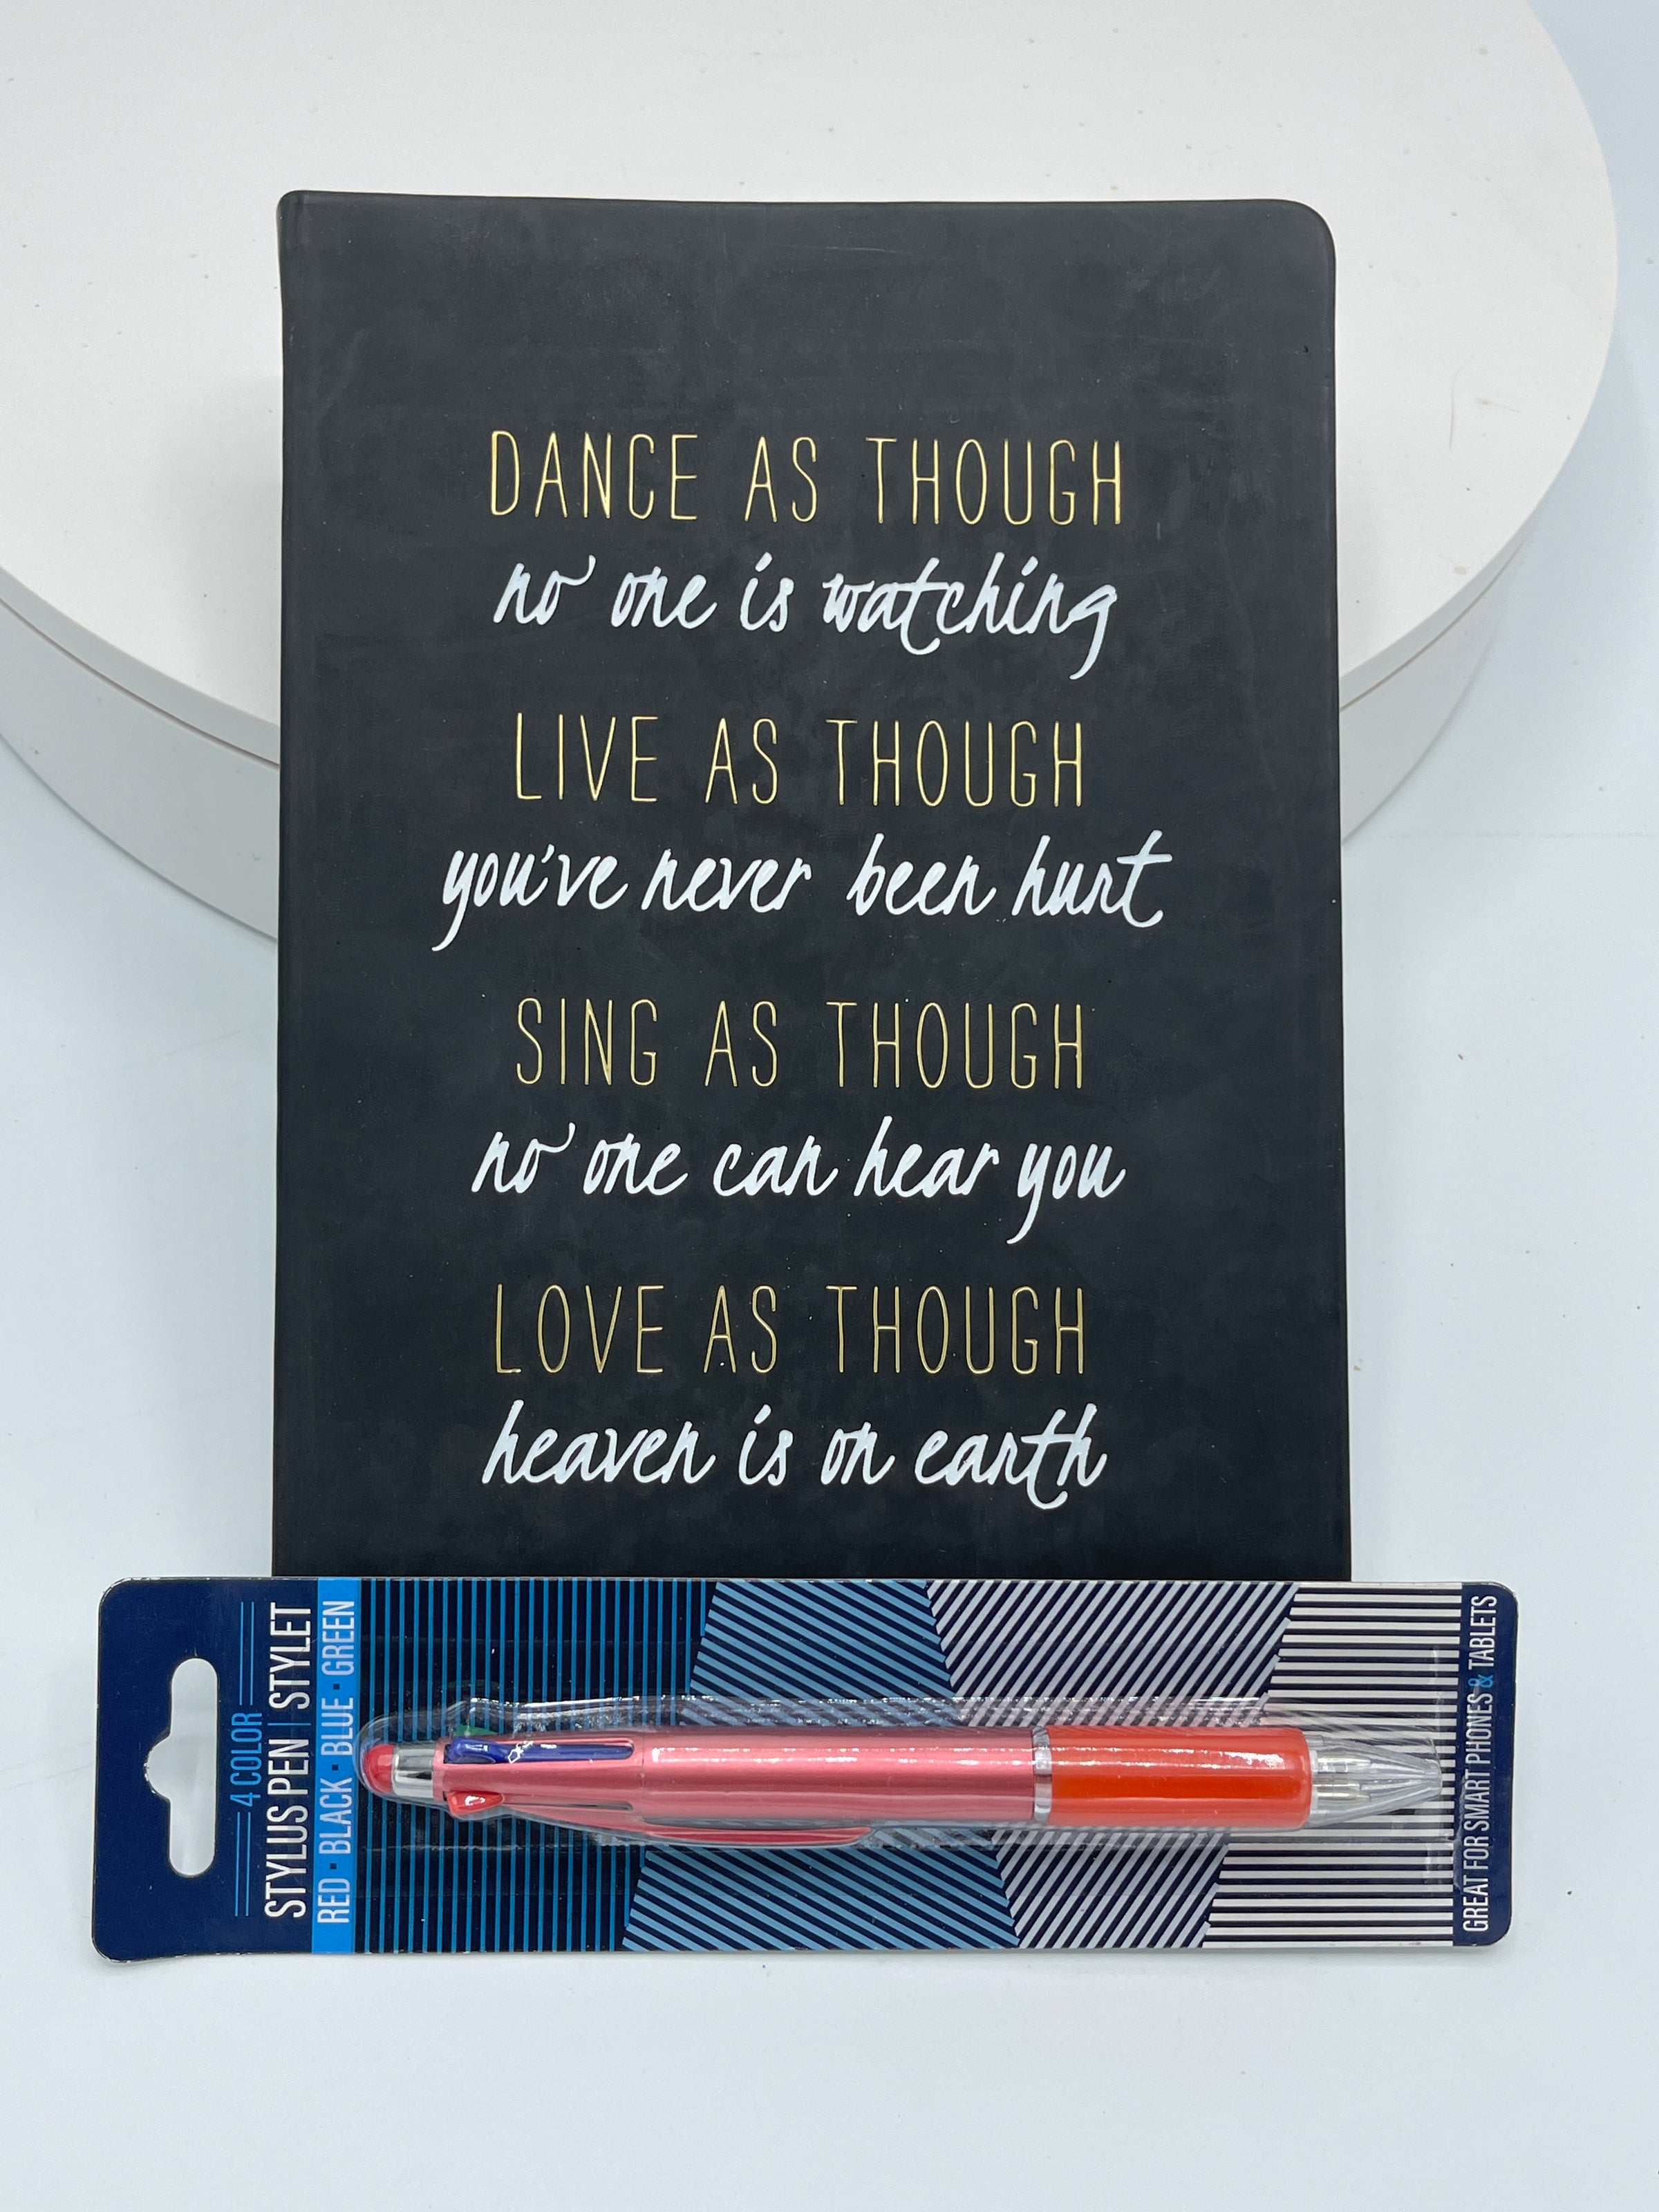 DANCE AS THOUGH
no one is watching
LIVE AS THOUGH
you've never been hurt
SING AS THOUGH
no one can hear you
LOVE AS THOUGH
heaven is on earth
4 COLOR
STYLUS PEN | STYLET
RED · BLACK · BLUE · GREEN
GREAT FOR SMART PHONES & TABLETS